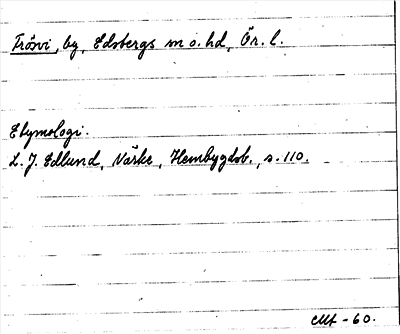 Frövi, by, Edsbergs sn o. hd, Ör. l.
Etymologi.
L. J. Edlund, Närke, Hembygdsb., s. 110.
-60.